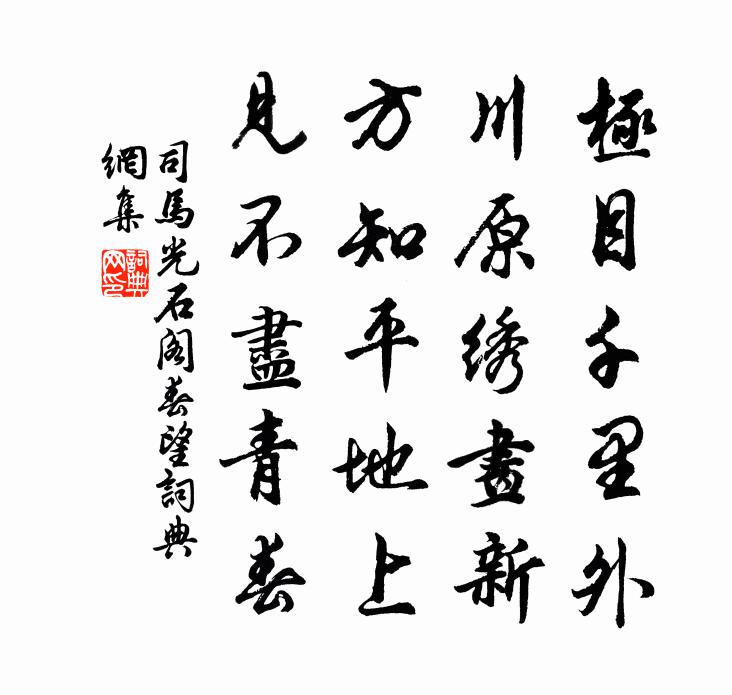 極目千里外
川原绣畫新
方知平地上
見不盡青春
司馬光石阁春望詞典
網集
詞典
网印